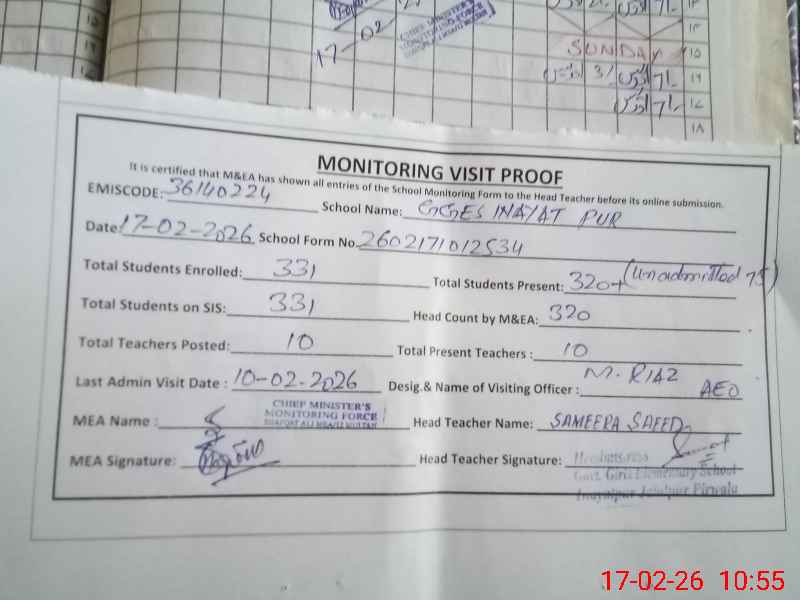 17-02
CHIEF MINISTER'S
MONITORING FORCE
SUNDAY
۱۳
۱۴
۱۵
۱۶
۱۷
۱۸
MONITORING VISIT PROOF
It is certified that M&EA has shown all entries of the School Monitoring Form to the Head Teacher before its online submission.
EMISCODE: 36140224 School Name: GGES INAYAT PUR
Date: 17-02-2026 School Form No. 2602171012534
Total Students Enrolled: 331 Total Students Present: 320+ (Unadmitted 75)
Total Students on SIS: 331 Head Count by M&EA: 320
Total Teachers Posted: 10 Total Present Teachers : 10
Last Admin Visit Date : 10-02-2026 Desig.& Name of Visiting Officer : M. RIAZ AEO
CHIEF MINISTER'S
MONITORING FORCE
MEA Name : Head Teacher Name: SAMEERA SAEED
MEA Signature: Head Teacher Signature:
Headmistress
Govt. Girls Elementary School
Inayatpur Jalalpur Pirwala
17-02-26 10:55